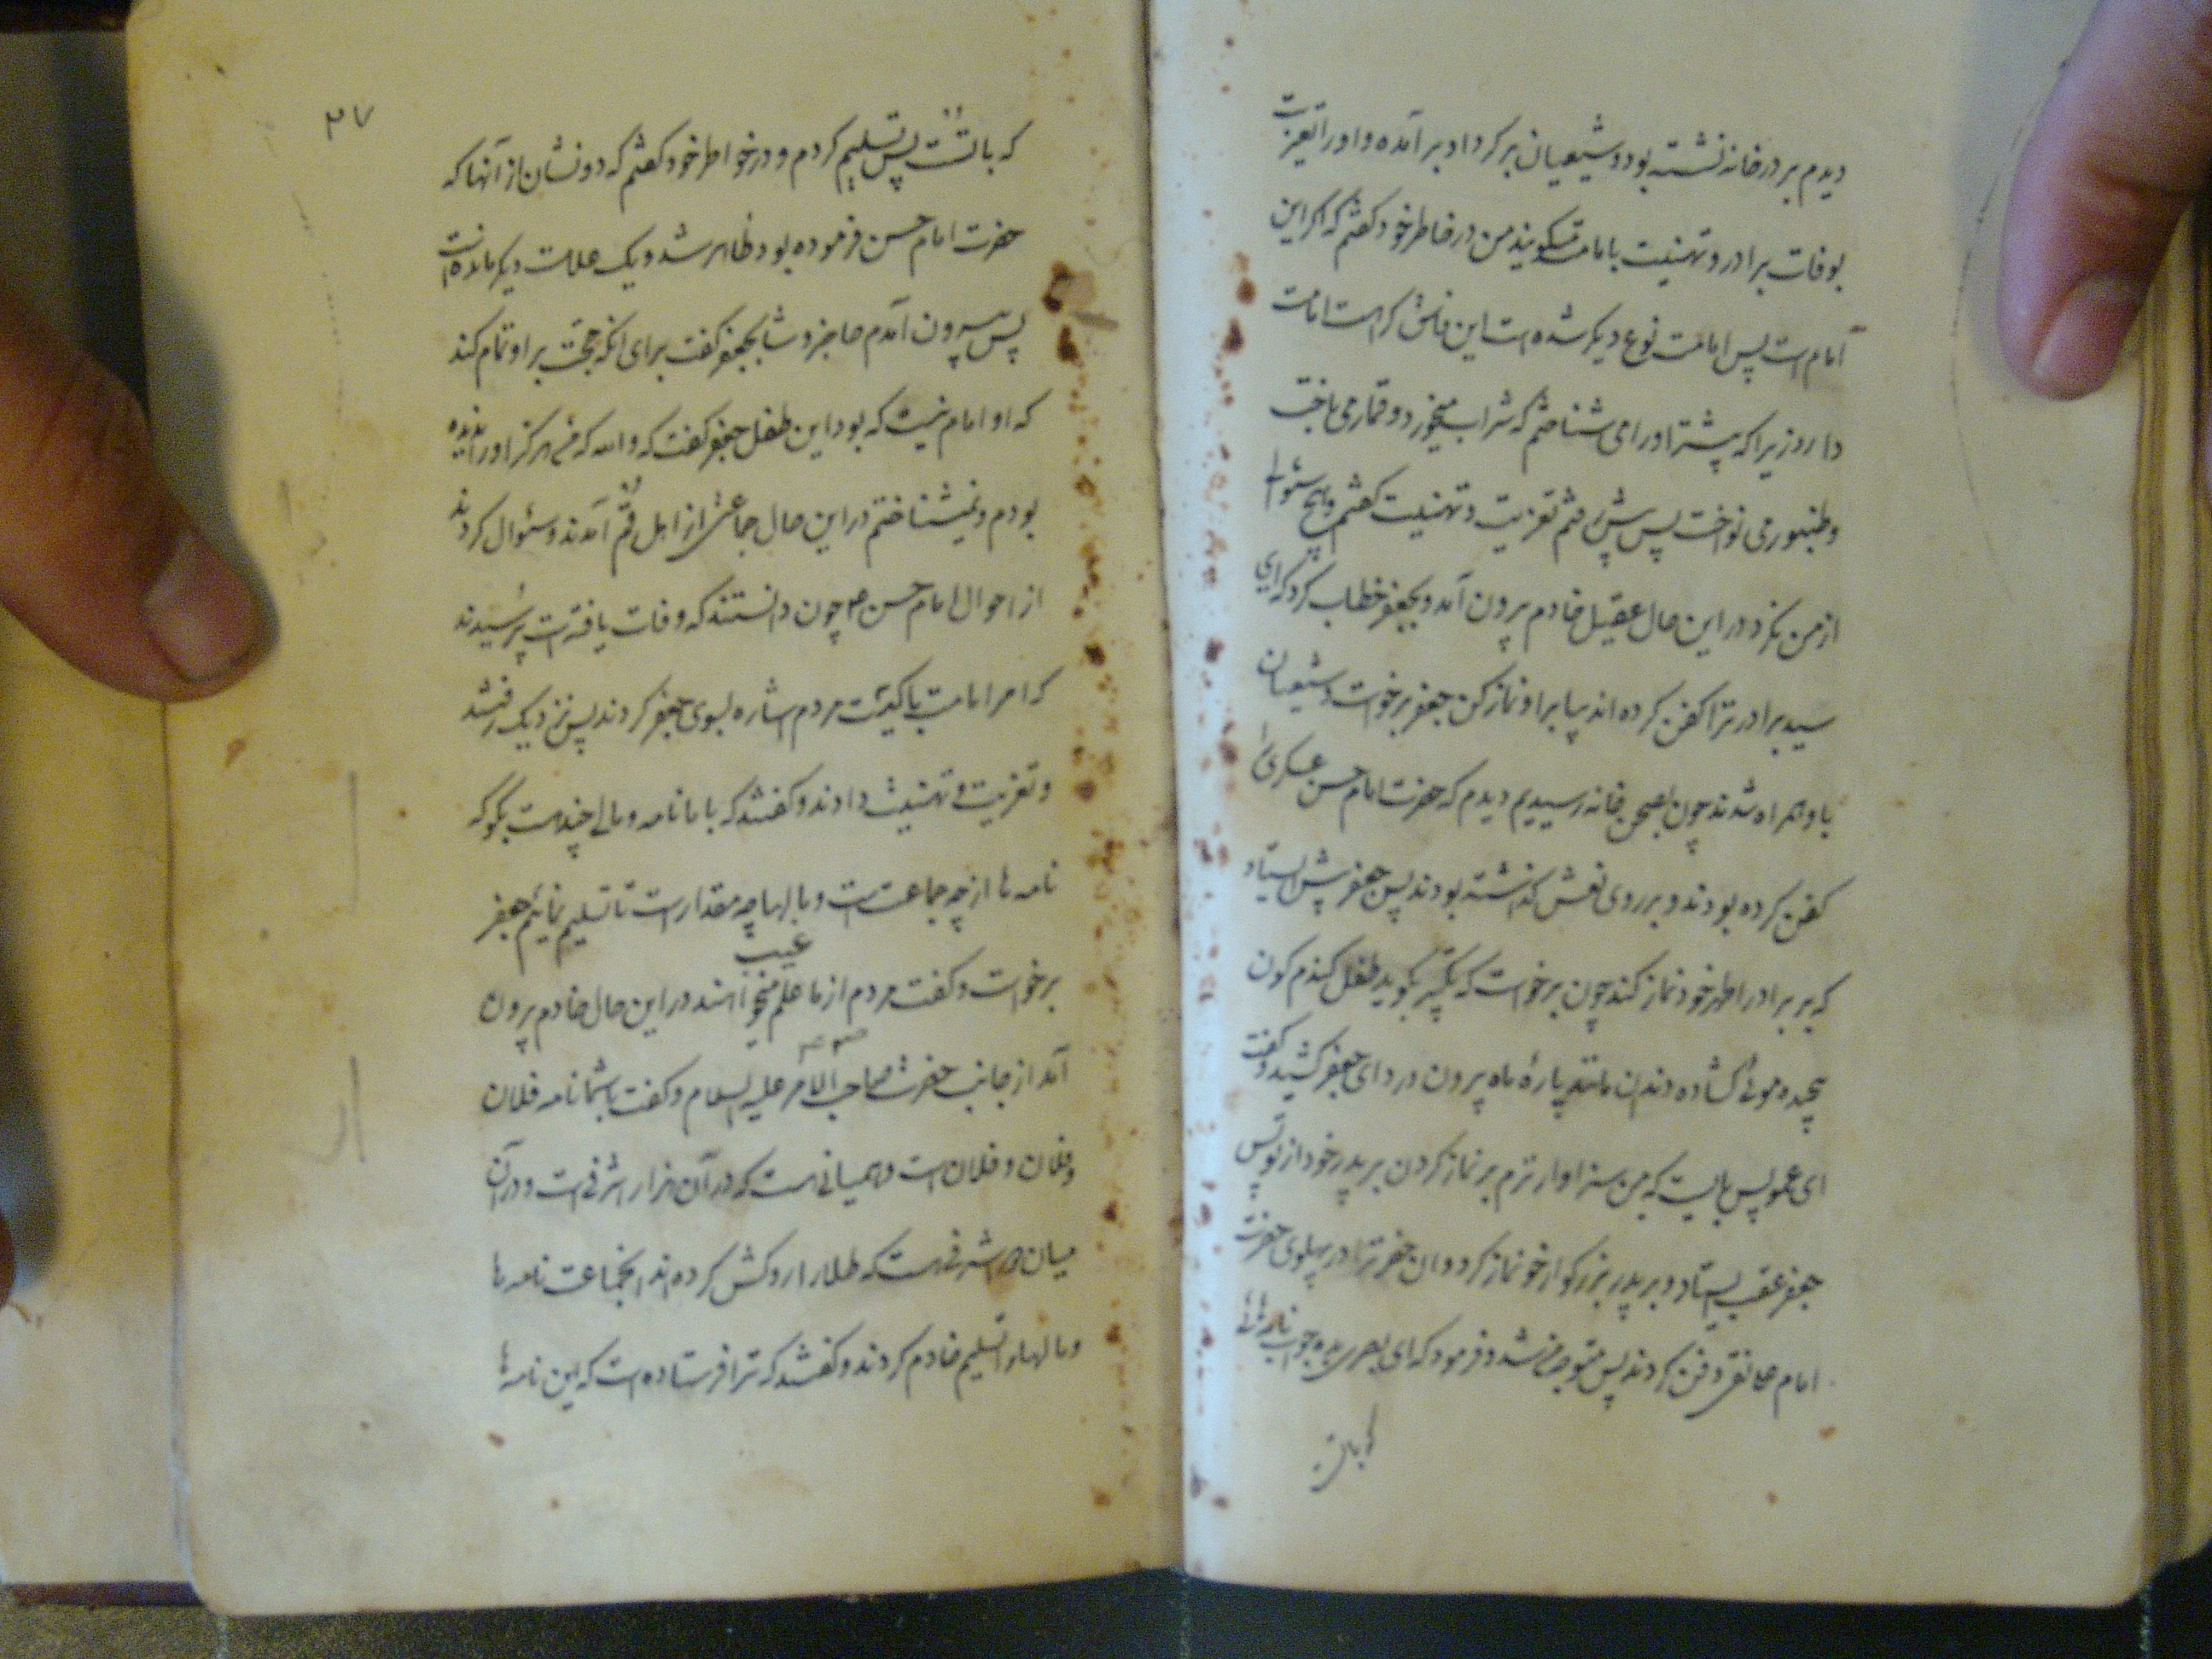 دیدم بر در خانه نشسته بود و شیعیان بر گرد او بر آمده و او را تعزیت
بوفات برادر و تهنیت بامامت میگویند من در خاطر خود گفتم که اگر این
امام است پس امامت نوع دیگر شده است این فاسق کی است امامت
دارد زیرا که پیشتر او را می شناختم که شراب میخورد و قمار می باخت
و طنبور می نواخت پس پیش رفتم تعزیت و تهنیت گفتم و هیچ سئوال
از من نکرد در این حال عقیل خادم بیرون آمد و بجعفر خطاب کرد که ای
سید برادر ترا کفن کرده اند بیا بر او نماز کن جعفر برخواست و شیعیان
با او همراه شدند چون بصحن خانه رسیدیم دیدم که حضرت امام حسن عسکری
کفن کرده بودند و بر روی نعش گذاشته بودند پس جعفر پیش ایستاد
که بر برادر اطهر خود نماز کند چون برخواست که تکبیر بگوید طفل گندم گون
پیچیده موئی گشاده دندان مانند پارهٔ ماه بیرون در ردای جعفر کشید و گفت
ای عمو پس بایست که من سزاوار ترم بر نماز کردن بر پدر خود از تو پس
جعفر عقب ایستاد و بر پدر بزرگوار خود نماز کرد و ان حضرت را در پهلوی حضرت
امام علی نقی دفن کردند پس متوجه من شد و فرمود که ای بصری بده جواب نامه هائی
که باتست
۳۷
که باتست پس تسلیم کردم و در خواطر خود گفتم که دو نشان از آنها که
حضرت امام حسن فرموده بود ظاهر شد و یک علامت دیگر مانده است
پس بیرون آمدم حاجز وشا بجعفر گفت برای انکه حجت بر او تمام کند
که او امام نیست که بود این طفل جعفر گفت که والله که من هرگز او را ندیده
بودم و نمیشناختم در این حال جماعتی از اهل قم آمدند و سئوال کردند
از احوال امام حسن ع چون دانستند که وفات یافته است پرسیدند
که امر امامت با کیست مردم اشاره بسوی جعفر کردند پس نزدیک رفتند
و تعزیت و تهنیت دادند و گفتند که با ما نامه و مالی چند است بگو که
نامه ها از چه جماعت است و مالها چه مقدار است تا تسلیم نمائیم جعفر
برخواست و گفت مردم از ما علم غیب میخواهند در این حال خادم بیرون
آمد از جانب حضرت صاحب الامر علیه السلام و گفت با شما نامه فلان
و فلان و فلان است و همیانی هست که در آن هزار اشرفی است و در آن
میان ده اشرفی هست که طلا را روکش کرده اند انجماعت نامه ها
و مالها را تسلیم خادم کردند و گفتند که ترا فرستاده است که این نامه ها